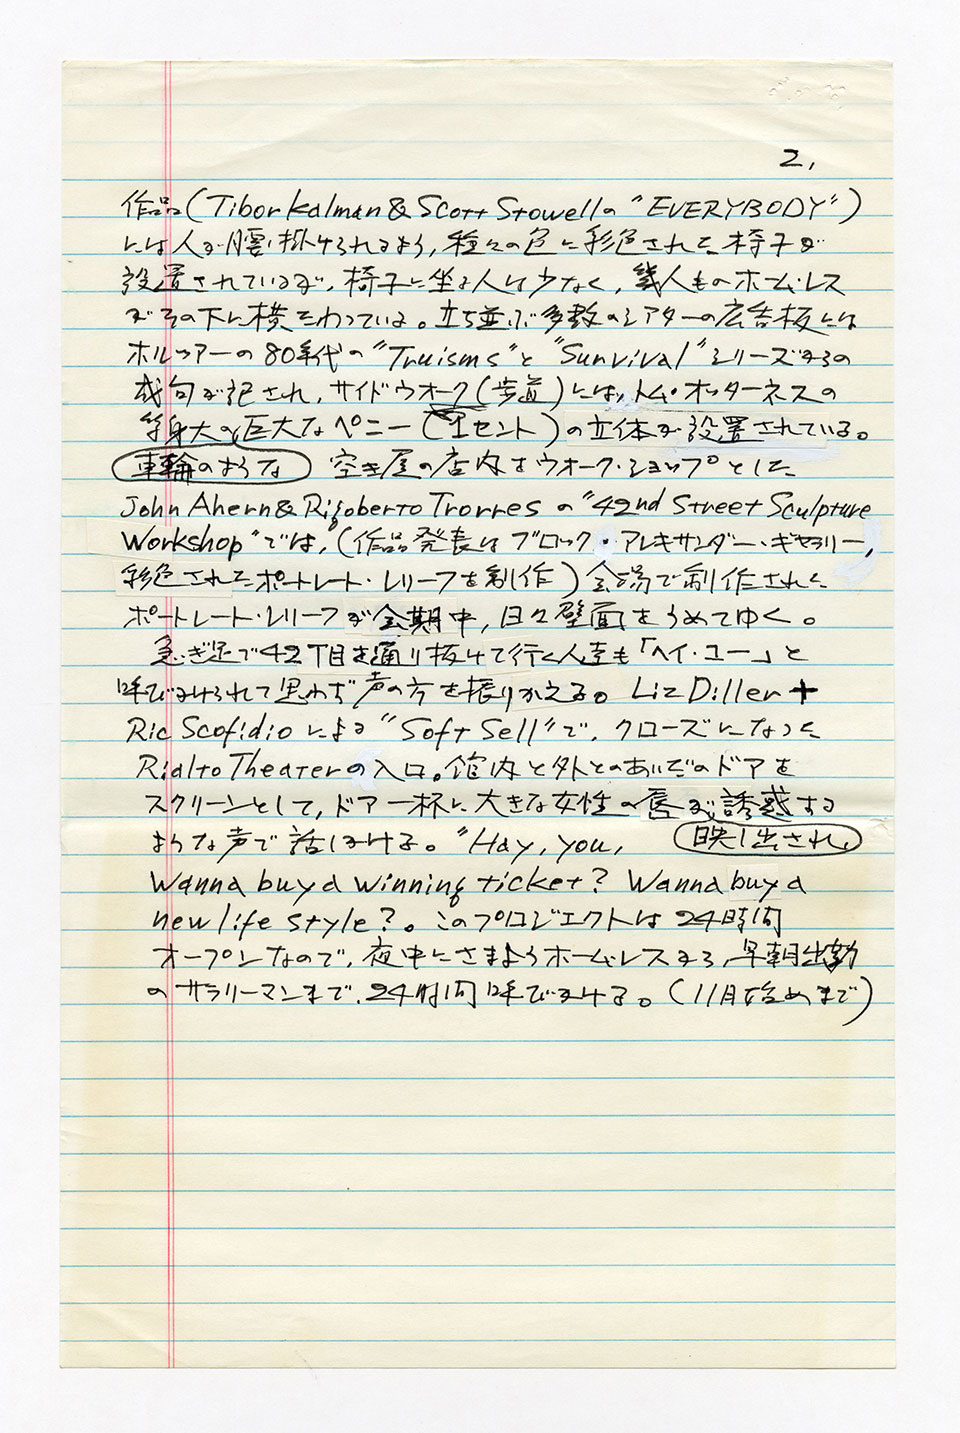 2.
作品(Tibor Kalman & Scott Stowellの "EVERYBODY")
には人が腰掛けられるよう,種々の色に彩色された椅子が
設置されているが,椅子に坐る人は少なく,幾人ものホームレス
がその下に横たわっている。立ち並ぶ多数のシアターの広告板には
ホルツアーの80年代の"Truisms"と"Survival"シリーズからの
成句が記され,サイドウオーク(歩道)には,トム・オッターネスの
等身大の巨大なペニー(1セント)の立体が設置されている。
車輪のような 空き屋の店内はウオーク・ショップとした
John Ahern & Rigoberto Trorresの"42nd Street Sculpture
Workshop"では,(作品発表はブロック・アレキサンダー・ギャラリー,
彩色されたポートレート・レリーフを制作)会場で制作された
ポートレート・レリーフが会期中,日々壁面をうめてゆく。
急ぎ足で42丁目を通り抜けて行く人達も「ヘイ・ユー」と
呼びかけられて思わず声の方を振りかえる。Liz Diller +
Ric Scofidioによる"Soft Sell"で,クローズになった
Rialto Theaterの入口。館内と外とのあいだのドアを
スクリーンとして,ドア一杯に大きな女性の唇が誘惑する
ような声で話しかける。"Hay, you, 映し出され,
Wanna buy a winning ticket? Wanna buy a
new life style?。このプロジェクトは24時間
オープンなので,夜中にさまようホームレスから,早朝出勤
のサラリーマンまで,24時間呼びかける。(11月始めまで)